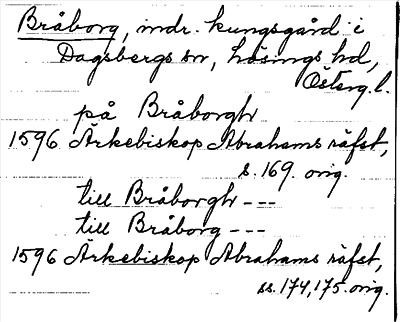 Bråborg, indr. kungsgård i
Dagsbergs sn, Lösings hd,
Österg. l.
på Bråborgh
1596 Ärkebiskop Abrahams räfst,
s. 169. orig.
till Bråborgh ---
till Bråborg ---
1596 Ärkebiskop Abrahams räfst,
ss. 174, 175. orig.